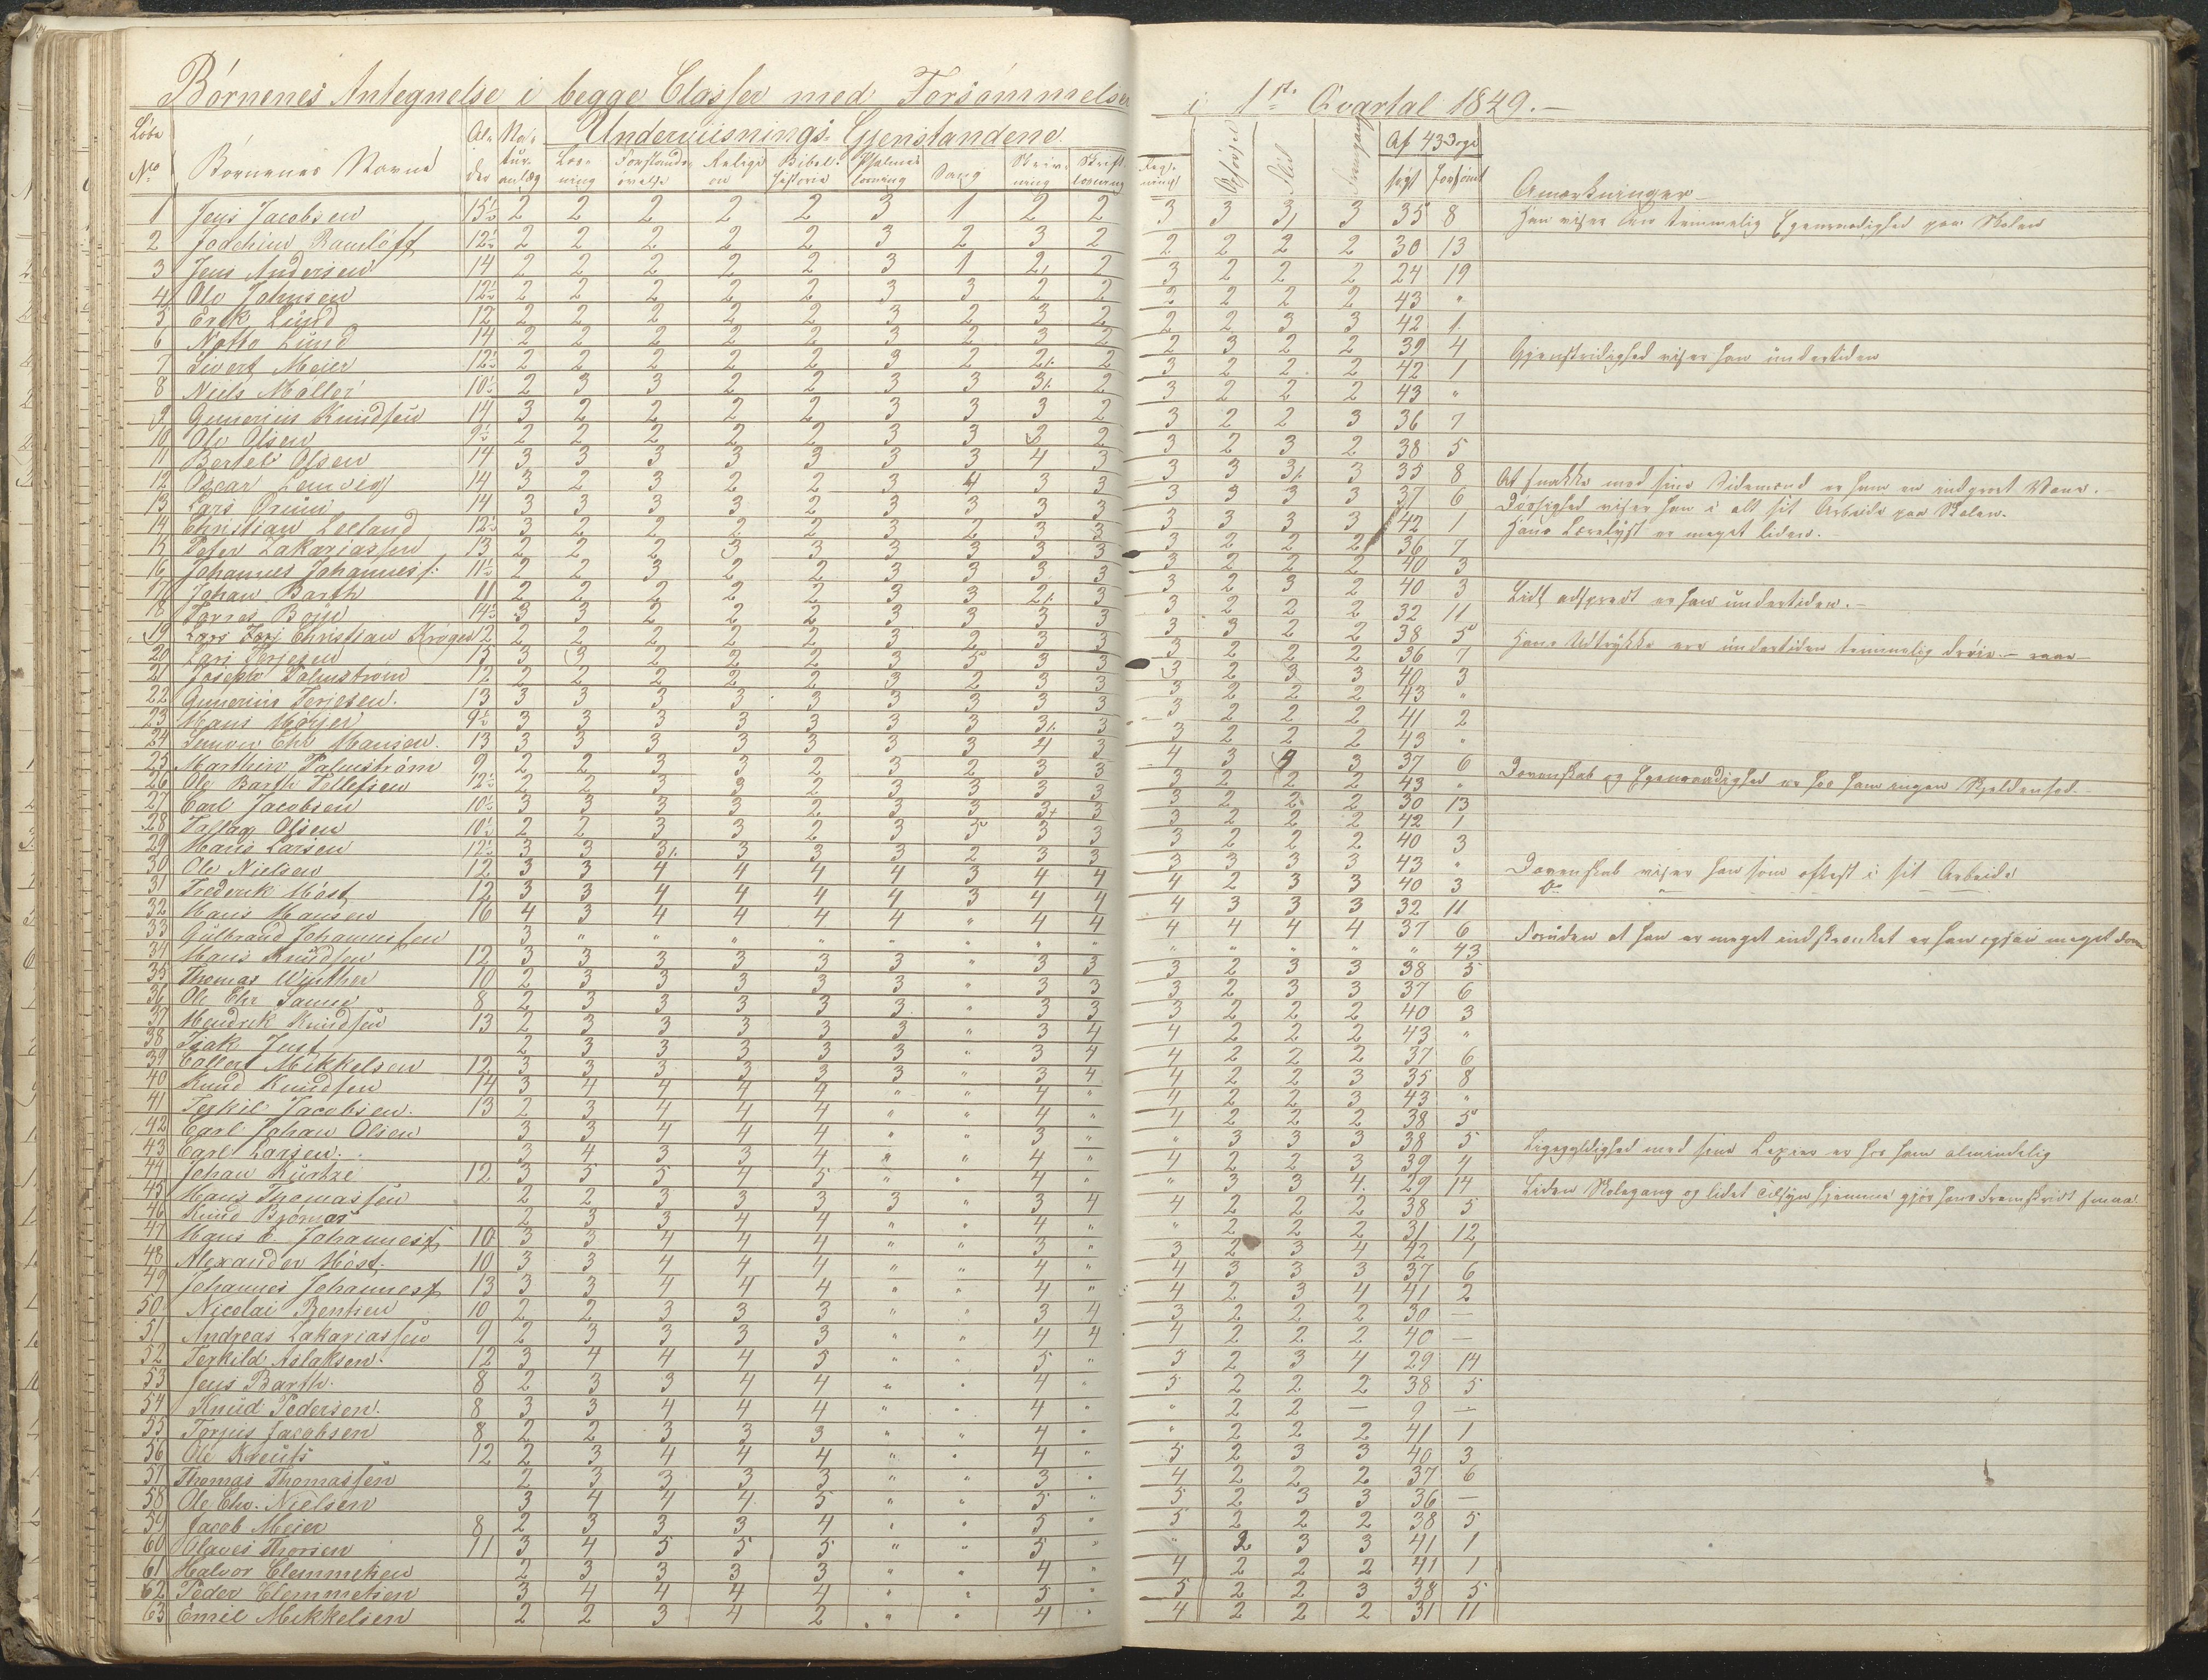 Börnenes Antegnelse i begge Classer med Forsömmelser i 1ste Qvartal 1849.-
Löbe No
Börnenes Navne
Al-der
Na-tur-anlæg
Underviisnings-Gjenstandene
Læs-ning
Forstands-övelse
Religi-on
Bibel-historie
Psalme-læsning
Sang
Skriv-ning
Skrift læsning
Regning
Opförsel
Flid
Fremgang
Af 43 Dage
sögt
forsömt
Anmærkninger
1 Jens Jacobsen 15½ 2 2 2 2 2 3 1 2 2 3 3 3, 3 35 8
2 Jochim 12½ 2 2 2 2 2 3 2 3 2 2 2 2 2 30 13
3 Jens Andersen 14 2 2 2 2 2 3 1 2, 2 3 2 2 2 24 19
4 Ole Johnsen 12½ 2 2 2 2 2 3 3 2 2 2 2 2 2 43 "
5 Erik Lund 12 2 2 2 2 2 3 2 3 2 2 2 3 3 42 1
6 Lund 14 2 2 2 2 2 3 2 3 2 2 3 2 2 39 4 Gjenstridighed viser han undertiden
7 Sivert Meier 12½ 2 2 2 2 2 3 2 2 2 3 2 2 2 42 1
8 Niels Möller 10½ 2 3 3 2 2 3 3 3 2 3 2 2 2 43 "
9 Gunerius Knudsen 14 3 2 2 2 2 3 3 3 2 3 2 2 3 36 7
10 Ole Olsen 9½ 2 2 2 2 2 3 3 3 2 3 2 3 2 38 5
11 Bertel Olsen 14 3 3 3 3 3 3 3 4 3 3 3 3 3 35 8 At snakke med sine Sidemænd er ham en indgroet Vane.
12 Oscar Lemvig 14 3 2 3 2 2 3 4 3 3 3 3 3 3 37 6 Dorskhed viser han i alt sit Arbeide paa Skolen.
13 Lars 14 3 3 3 3 2 3 3 3 3 3 3 3 3 42 1 Hans Lærelyst er meget liden.
14 Christian Lelland 12½ 3 2 2 2 2 3 2 3 3 3 2 2 2 36 7
15 Peter Zakariassen 13 2 2 2 3 3 3 3 3 3 3 2 2 2 40 3
16 Johannes Johannes 11½ 2 2 3 2 2 3 3 3 3 3 2 3 2 40 3 Lidt adspredt er han undertiden.-
17 Johan Barth 11 2 2 2 2 2 3 3 2 3 3 2 2 2 32 11
18 14½ 3 3 2 2 2 3 3 3 3 3 3 2 2 38 5 Hans Udtrykke ere undertiden temmelig
19 Lars Christian Kröger 12 2 2 2 2 2 3 2 3 3 3 2 2 2 36 7
20 Lars Terjesen 15 3 3 2 2 2 3 5 3 3 3 2 3 3 40 3
21 Joseph Palmström 12 2 2 2 2 2 3 2 3 3 3 2 2 2 43 "
22 Gunerius Terjesen. 13 3 3 3 3 3 3 3 3 3 3 2 2 2 41 2
23 Hans 9½ 3 3 3 3 3 3 3 3 3 3 2 2 2 43 "
24 Simon Chr Hansen. 13 3 3 3 3 3 3 3 4 3 4 3 4 3 37 6 Dovenskab og Egenraadighed er hos ham ingen Sjeldenhed.
25 Marthin Palmström 9 2 2 3 3 2 3 2 3 3 3 2 2 2 43 "
26 Ole Barth Tellefsen 12½ 2 2 3 3 2 3 3 3 3 3 2 2 2 30 13
27 Carl Jacobsen 10½ 3 3 3 3 2 3 3 3+ 3 3 2 2 2 42 1
28 Taflaq Olsen 10½ 2 2 3 3 2 3 5 3 3 3 2 2 2 40 3
29 Hans Larsen 12½ 3 3 3 3 3 3 2 3 3 3 3 3 3 43 " Dovenskab viser han som oftest i sit Arbeide
30 Ole Nielsen 12 3 3 4 4 4 4 3 4 4 4 2 3 3 40 3 Do
31 Frederik Höst 12 3 3 4 4 4 4 3 4 4 4 3 3 3 32 11
32 Hans Hansen 16 4 3 4 4 4 4 " 4 4 4 4 4 4 37 6 Foruden at han er meget indskrænket er han ogsaa meget doven
33 Gulbrand Johannessen 3 " " " " " " " " " " " " " 43
34 Hans Knudsen 12 3 3 3 3 3 3 " 3 3 3 2 3 3 38 5
35 Thomas Winther 10 2 3 3 3 3 3 " 3 3 3 2 3 3 37 6
36 Ole Chr 8 2 3 3 3 3 3 " 3 3 3 2 2 2 40 3
37 Hendrik Knudsen 13 2 3 3 3 3 3 " 3 4 4 2 2 2 43 "
38 Isak Just 2 3 3 3 3 3 " 3 4 4 2 2 2 37 6
39 Mikkelsen 12 3 3 3 3 3 3 " 3 4 4 2 2 3 35 8
40 Knud Knudsen 14 3 4 4 4 4 " " 4 " 4 2 2 3 43 "
41 Terkil Jacobsen. 13 2 3 4 4 4 " " 4 " 4 2 2 2 38 5
42 Carl Johan Olsen 3 3 4 4 4 " " 3 " " 3 3 3 38 5 Ligegyldighed med sine Lexier er hos ham almindelig
43 Carl Larsen. 3 4 3 3 4 " " 4 " 4 2 2 3 39 4
44 Johan Kürtze 12 3 5 5 4 5 " " 4 " " 3 3 4 29 14 Liden Skolegang og lidet Tilsyn hjemme gjör hans Fremskridt smaa
45 Hans Thomassen 2 2 3 3 3 3 " 3 4 4 2 2 2 38 5
46 Knud 2 3 3 4 4 " " 4 " " 2 2 2 31 12
47 Hans Johanness 10 3 3 4 4 4 " " 3 " 3 2 3 4 42 1
48 Alexander Höst. 10 3 3 4 4 4 " " 4 " 4 3 3 3 37 6
49 Johannes Johanness 13 3 3 4 4 4 " " 4 " 4 2 3 4 41 2
50 Nicolai Bentsen 10 2 2 3 3 3 " " 3 4 3 2 2 2 30 —
51 Andreas Zakariassen 9 2 3 3 3 3 " " 4 4 4 2 2 2 40 —
52 Terkild Aslaksen. 12 3 4 4 4 5 " " 5 " 5 2 3 4 29 14
53 Jens Barth. 8 2 3 3 4 4 " " 4 " 5 2 2 2 38 5
54 Knud Pedersen. 8 3 3 4 4 4 " " 4 " " 2 2 — 9 —
55 Torjus Jacobsen 8 2 2 3 3 3 " " 4 " " 2 2 2 41 1
56 Ole 12 2 3 4 4 4 " " 4 " 5 2 3 3 40 3
57 Thomas Thomassen 2 3 3 3 3 " " 3 " 4 2 2 2 37 6
58 Ole Chr. Nielsen 3 4 4 4 5 " " 5 " 5 2 3 3 36 —
59 Jacob Meier 8 2 3 3 3 4 " " 5 " 5 2 2 2 38 5
60 Olaves Thorsen 11 3 4 5 5 5 " " 5 " " 2 3 3 41 1
61 Halvor Clemmetsen 2 3 3 3 3 " " 4 " 4 2 2 2 41 1
62 Peder Clemmetsen 3 4 4 4 4 " " 5 " 5 2 2 3 38 5
63 Emil Mikkelsen 2 2 3 4 2 " " 4 " 4 2 2 2 31 11